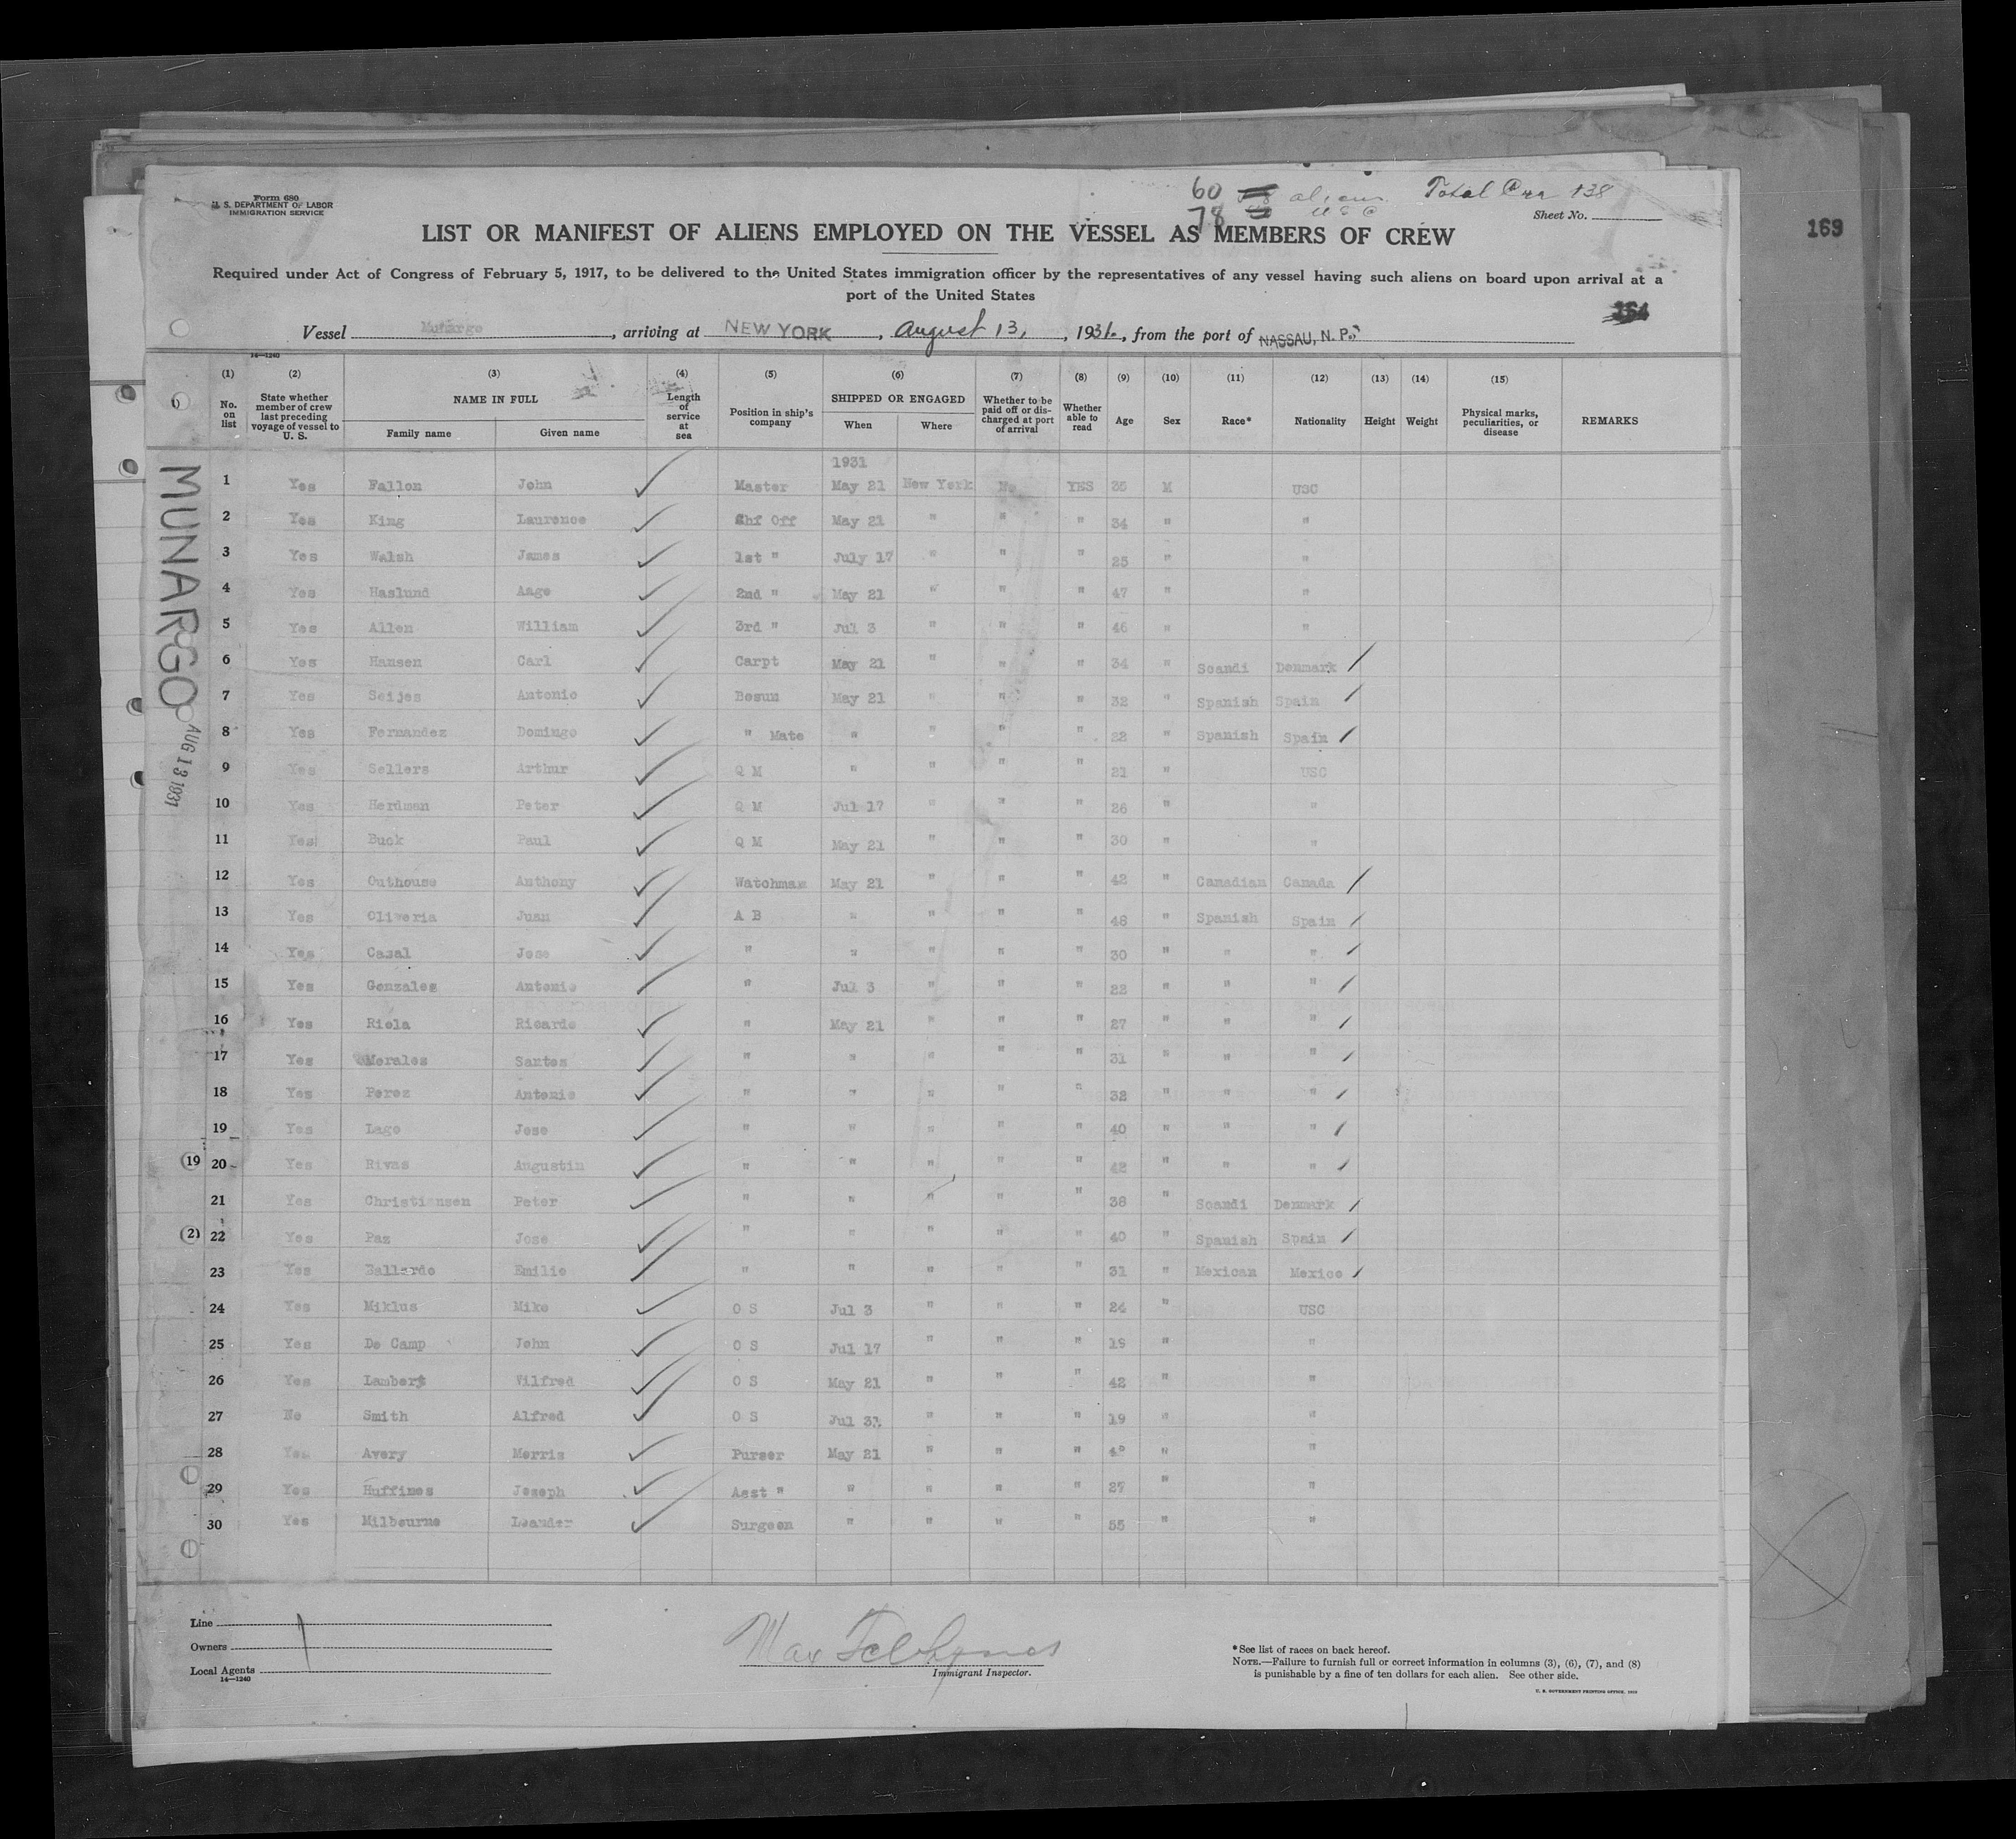 Form 680
U. S. DEPARTMENT OF LABOR
IMMIGRATION SERVICE
60 aliens Total Crew 138
78 U S C
Sheet No.
169
LIST OR MANIFEST OF ALIENS EMPLOYED ON THE VESSEL AS MEMBERS OF CREW
Required under Act of Congress of February 5, 1917, to be delivered to the United States immigration officer by the representatives of any vessel having such aliens on board upon arrival at a
port of the United States
164
Vessel Munargo, arriving at NEW YORK, August 13, 1931., from the port of NASSAU, N. P.
14—1240
(1) (2) (3) (4) (5) (6) (7) (8) (9) (10) (11) (12) (13) (14) (15)
No. on list State whether member of crew last preceding voyage of vessel to U. S. NAME IN FULL Family name Given name Length of service at sea Position in ship's company SHIPPED OR ENGAGED When Where Whether to be paid off or discharged at port of arrival Whether able to read Age Sex Race* Nationality Height Weight Physical marks, peculiarities, or disease REMARKS
MUNARGO
AUG 13 1931
1931
1 Yes Fallon John Master May 21 New York No YES 35 M USC
2 Yes King Laurence Chf Off May 21 " " " 34 " "
3 Yes Walsh James 1st " July 17 " " " 25 " "
4 Yes Haslund Aage 2nd " May 21 " " " 47 " "
5 Yes Allen William 3rd " Jul 3 " " " 46 " "
6 Yes Hansen Carl Carpt May 21 " " " 34 " Scandi Denmark
7 Yes Seijes Antonio Bosun May 21 " " " 32 " Spanish Spain
8 Yes Fernandez Domingo " Mate " " " " 22 " Spanish Spain
9 Yes Sellers Arthur Q M " " " " 21 " USC
10 Yes Herdman Peter Q M Jul 17 " " " 26 " "
11 Yes Buck Paul Q M May 21 " " " 30 " "
12 Yes Outhouse Anthony Watchman May 21 " " " 42 " Canadian Canada
13 Yes Oliveria Juan A B " " " " 48 " Spanish Spain
14 Yes Casal Jose " " " " " 30 " " "
15 Yes Gonzales Antonio " Jul 3 " " " 22 " " "
16 Yes Riola Ricardo " May 21 " " " 27 " " "
17 Yes Morales Santos " " " " " 31 " " "
18 Yes Perez Antonio " " " " " 32 " " "
19 Yes Lago Jose " " " " " 40 " " "
19 20 Yes Rivas Augustin " " " " " 42 " " "
21 Yes Christiansen Peter " " " " " 38 " Scandi Denmark
21 22 Yes Paz Jose " " " " " 40 " Spanish Spain
23 Yes Ballardo Emilio " " " " " 31 " Mexican Mexico
24 Yes Miklus Mike O S Jul 3 " " " 24 " USC
25 Yes De Camp John O S Jul 17 " " " 19 " "
26 Yes Lambert Wilfred O S May 21 " " " 42 " "
27 No Smith Alfred O S Jul 31 " " " 19 " "
28 Yes Avery Morris Purser May 21 " " " "
29 Yes Huffines Joseph Asst " " " " " 27 " "
30 Yes Milbourne Leander Surgeon " " " " 55 " "
Line
Owners
Local Agents
14—1240
Max
Immigrant Inspector.
*See list of races on back hereof.
NOTE.—Failure to furnish full or correct information in columns (3), (6), (7), and (8)
is punishable by a fine of ten dollars for each alien. See other side.
U. S. GOVERNMENT PRINTING OFFICE.